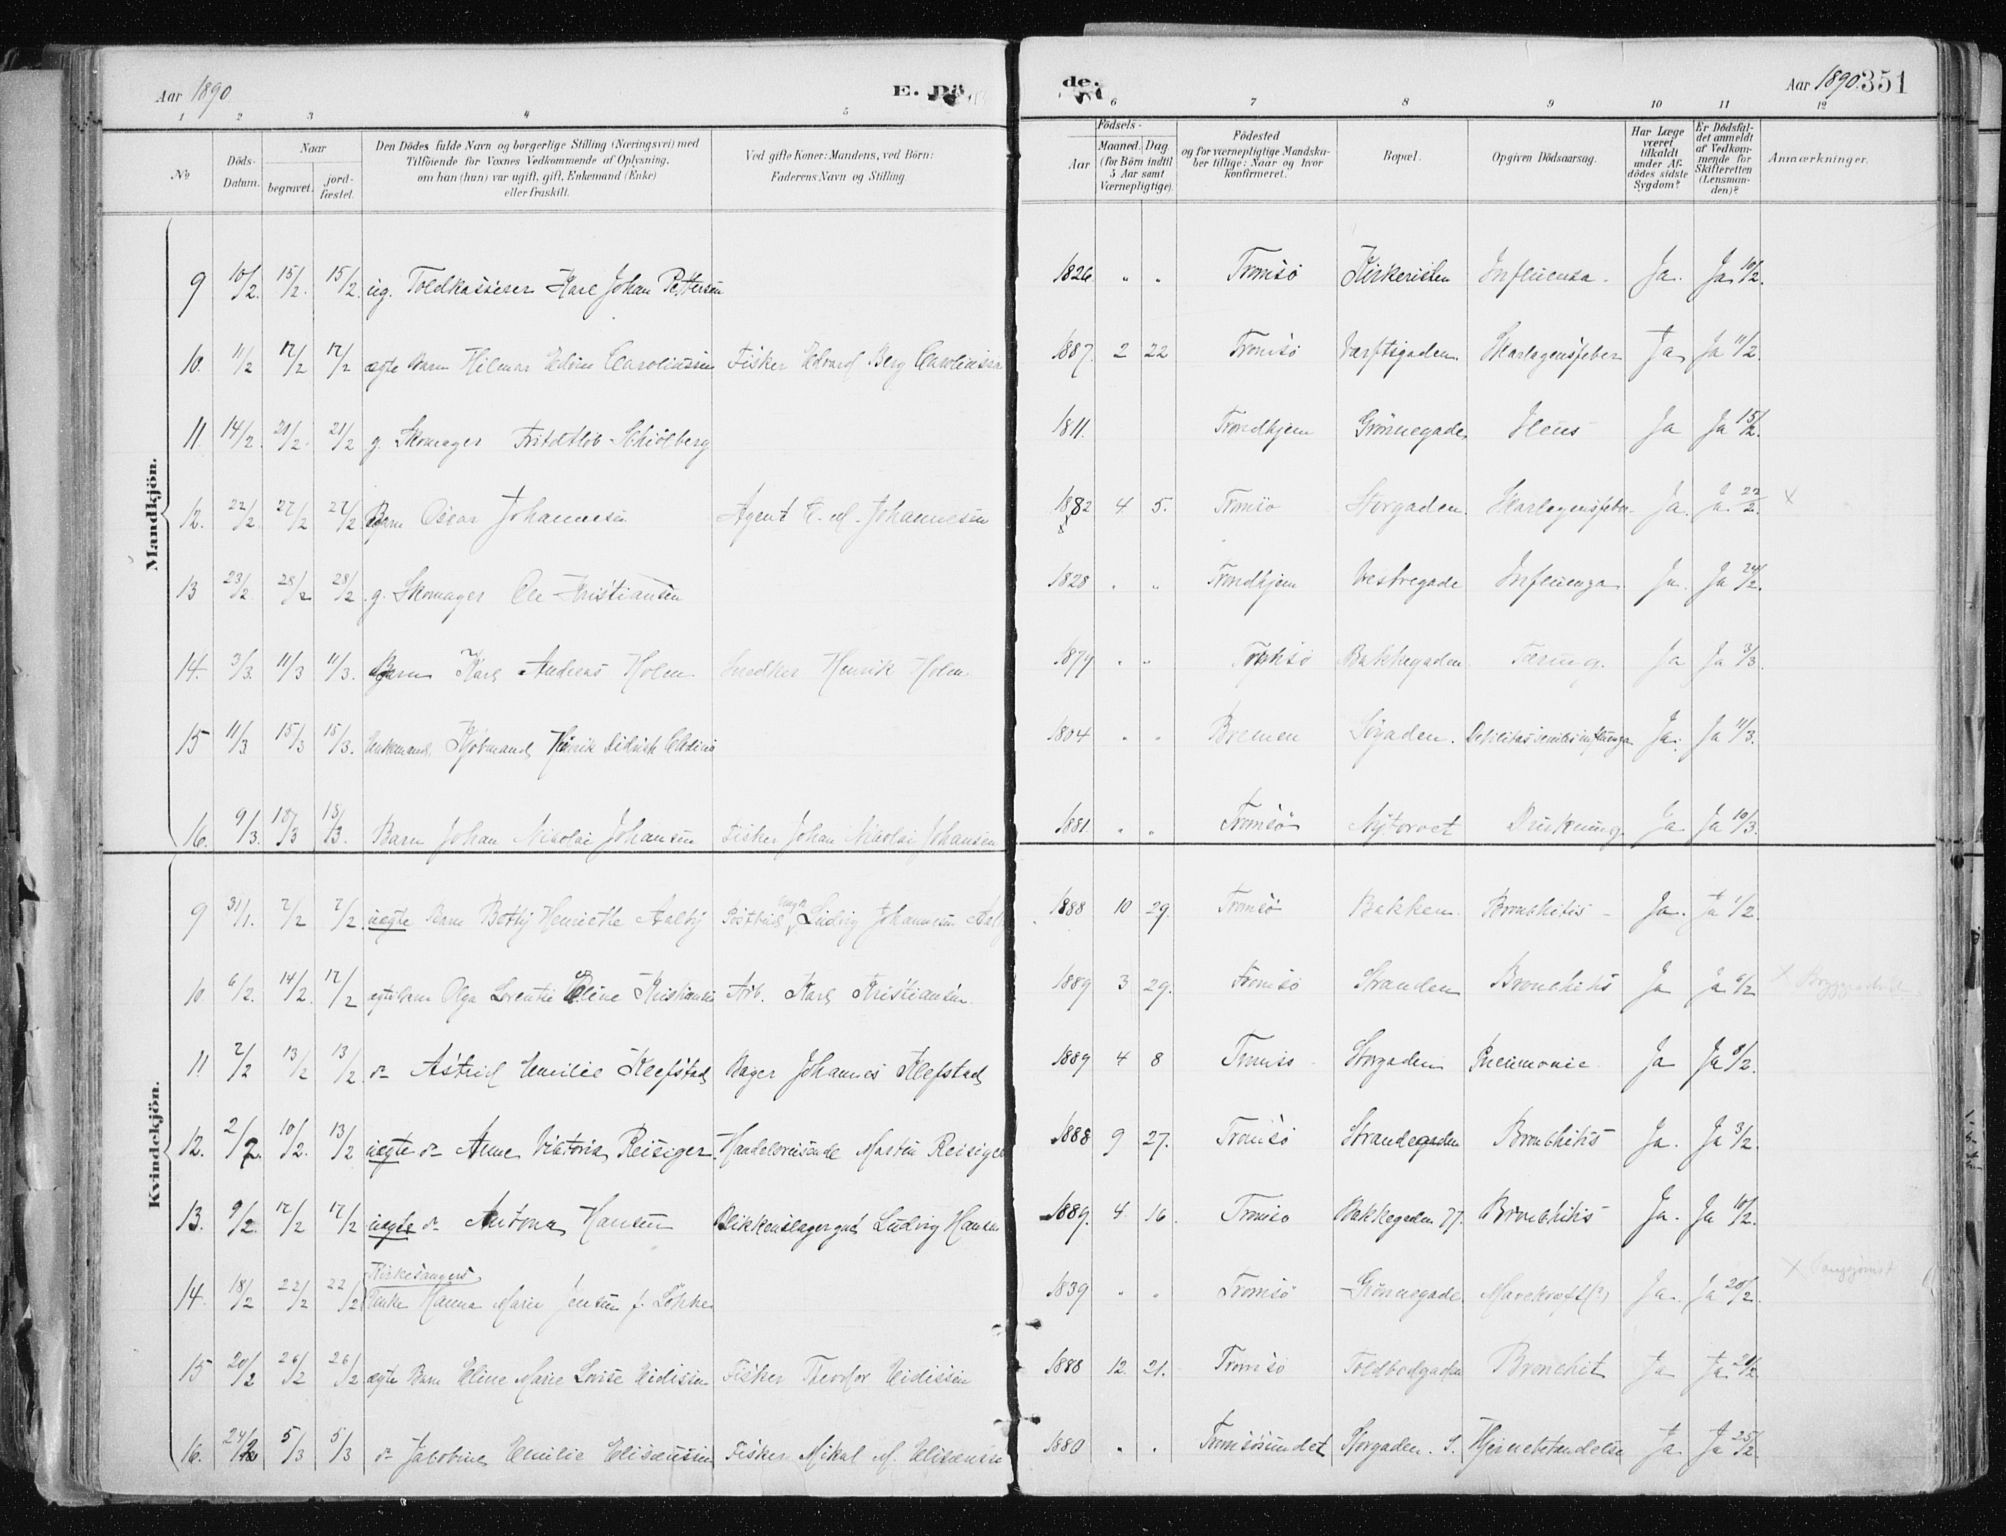 Aar 1890 E. Dö de. Aar 1890. 351
1 2 3 4 5 6 7 8 9 10 11 12
No Döds-Datum. Naar begravet. jord-fæstet. Den Dödes fulde Navn og borgerlige Stilling (Næringsvei) med Tilföiende for Voxnes Vedkommende af Oplysning, om han (hun) var ugift, gift, Enkemand (Enke) eller fraskilt. Ved gifte Koner: Mandens, ved Börn: Faderens Navn og Stilling. Födsels- Aar Maaned. Dag (for Börn indtil 5 Aar samt Værnepligtige). Födested og for værnepligtige Mandskaber tillige: Naar og hvor konfirmeret. Bopæl. Opgiven Dödsaarsag. Har Læge været tilkaldt under Afdödes sidste Sygdom? Er Dödsfaldet anmeldt af Vedkommende for Skifteretten (Lensmanden)? Anmærkninger.
Mandkjön.
9 10/2. 15/2. 15/2. ug. Toldkasserer Karl Johan Pettersen 1826. " " Tromsö Kirkeristen Influensa. Ja. Ja 10/2.
10. 11/2 17/2 17/2 ægte Barn Hilmar Edvin Caroliussen Fisker Edvard Berg Caroliussen 1887. 2 22 Tromsö Værftsgaden. Skarlagensfeber Ja Ja 11/2.
11. 14/2. 21/2. 21/2 g. Skomager Fritdtlob Schiölberg 1811. Trondhjem Grönnegade. Ileus Ja Ja 15/2.
12. 22/2. 27/2 27/2 Barn Oscar Johannesen Agent E. M. Johannesen 1882 4 5. Tromsö Storgaden. Skarlagensfeber Ja. Ja. 22/2. x
13 23/2 28/2 28/2 g. Skomager Ole Kristiansen 1828 " " Trondhjem Vestregade Influenza Ja. Ja 24/2.
14. 3/3. 11/3 11/3. Barn Karl Andreas Holm Snedker Henrik Holm 1879 " " Tromsö Bakkegaden. Tæring. Ja Ja 3/3.
15 11/3 15/3 15/3. Enkemand Kjöbmand Henrik Didrik 1804 " " Bremen Sögaden. Debilitas senilis influenza Ja. Ja 11/3.
16. 9/3. 18/3 18/3. Barn Johan Nikolai Johansen Fisker Johan Nikolai Johansen 1881. " " Tromsö Nytorvet Drukning. Ja Ja 10/3.
Kvindekjön.
9 31/1. 7/2 7/2. uægte Barn Betty Henriette Aalby Postbud Ludvig Johannesen 1888 10 29. Tromsö Bakken Bronkhitis Ja. Ja 1/2
10. 6/2. 14/2. 17/2 ægte Barn Olga Lorentse Eline Kristiansen Arb. Karl Kristiansen. 1889 3 29. Tromsö Stranden Bronchitis Ja Ja 6/2 x
11 7/2 13/2 13/2. do Astrid Emilie Klefstad Bager Johannes Klefstad 1889 4 8 Tromsö Storgaden Pneumonie Ja Ja 8/2.
12. 2/2. 10/2. 13/2 uægte do Anne Viktoria Reisiger Handelsreisende Martin Reisiger 1888 9 27. Tromsö Strandegaden Bronkhitis Ja. Ja 3/2.
13. 9/2. 17/2 17/2 uægte do Antona Hansen Blikkenslagergut Ludvig Hansen 1889. 4. 16. Tromsö Bakkegaden 77. Bronkhitis Ja. Ja 10/2.
14. 18/2 22/2 22/2 Kirkesangers Enke Hanna Marie Jensen f. Lökke 1839 " " Tromsö Grönnegade. Mavekræft(?) Ja. Ja 20/2. x
15 20/2 26/2 26/2 ægte Barn Eline Marie Lovise Eidissen Fisker Theodor Eidissen 1888 12. 21. Tromsö Toldbodgaden Bronchit Ja Ja 21/2
16. 24/2 5/3 5/3 do Jacobine Emilie Elisæussen Fisker Mikal M. Elisæussen 1880 " " Tromsösundet Storgaden. S. Hjernebetændelse Ja Ja 25/2.